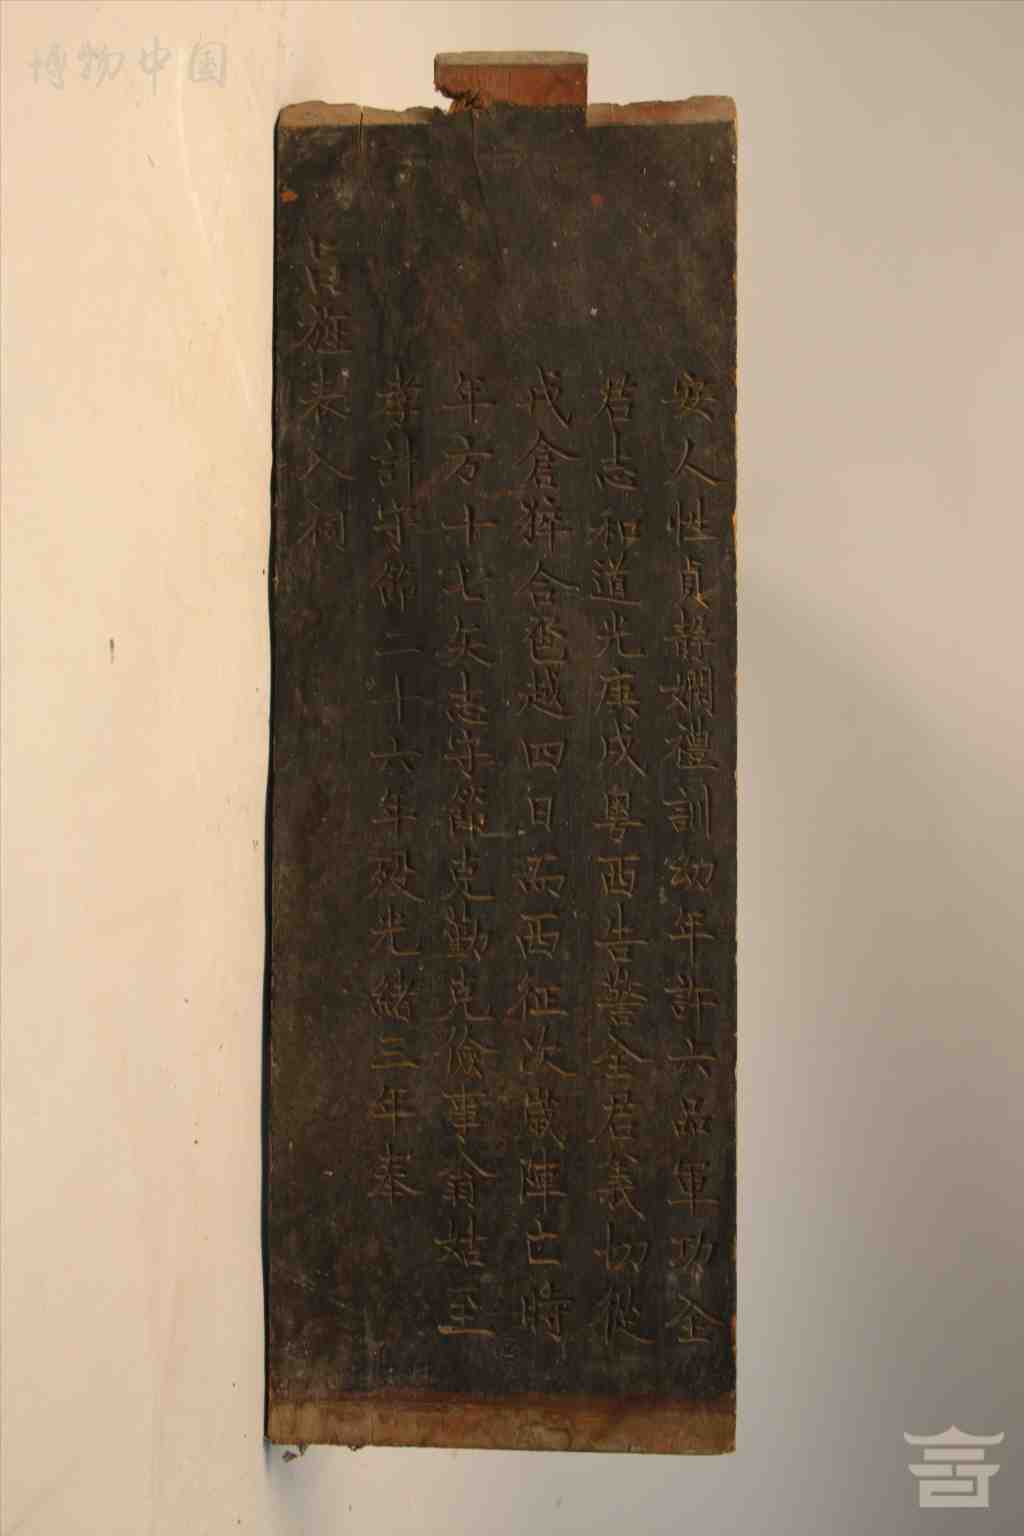 博物中国
安人性貞靜嫻禮訓幼年許六品軍功全
君志和道光庚戌粵西告警全君義切從
戎倉猝合卺越四日而西征次歲陣亡時
年方十七矢志守節克勤克儉事翁姑至
孝計守節二十六年歿光緒三年奉
旨旌表入祠